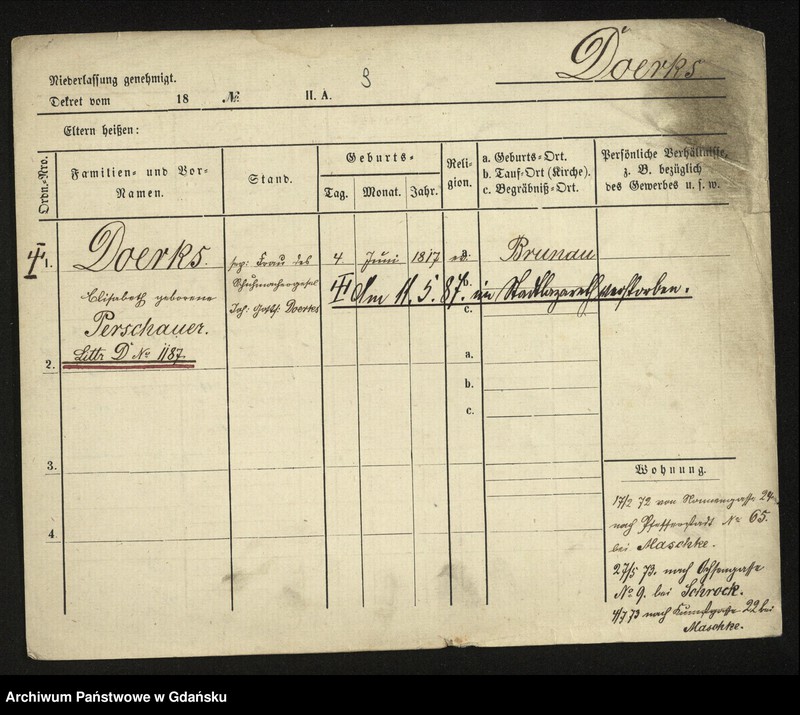 Doerks
Niederlassung genehmigt.
Dekret vom 18 № II. A.
Eltern heißen:
Ordn.-Nro.
Familien- und Vor-
Namen.
Stand.
Geburts-
Tag. Monat. Jahr.
Reli-
gion.
a. Geburts-Ort.
b. Tauf-Ort (Kirche).
c. Begräbniß-Ort.
Persönliche Verhältnisse,
z. B. bezüglich
des Gewerbes u. s. w.
1.
Doerks.
Elisabeth geborene
Perschauer.
Littr D No 1187.
sep: Frau des
Schuhmachergesel
Joh: Gottf: Doerkes
4 Juni 1817 a. Brunau
b.
Am 11. 5. 87. im Stadtlazareth verstorben.
c.
2.
a.
b.
c.
3.
4.
Wohnung.
17/2 72 von Nonnengasse 24
nach Pfefferstadt No 65.
bei Maschke.
27/5 73. nach Ochsengasse
No 9. bei Schrock.
4/7 73 nach 22 bei
Maschke.
Archiwum Państwowe w Gdańsku